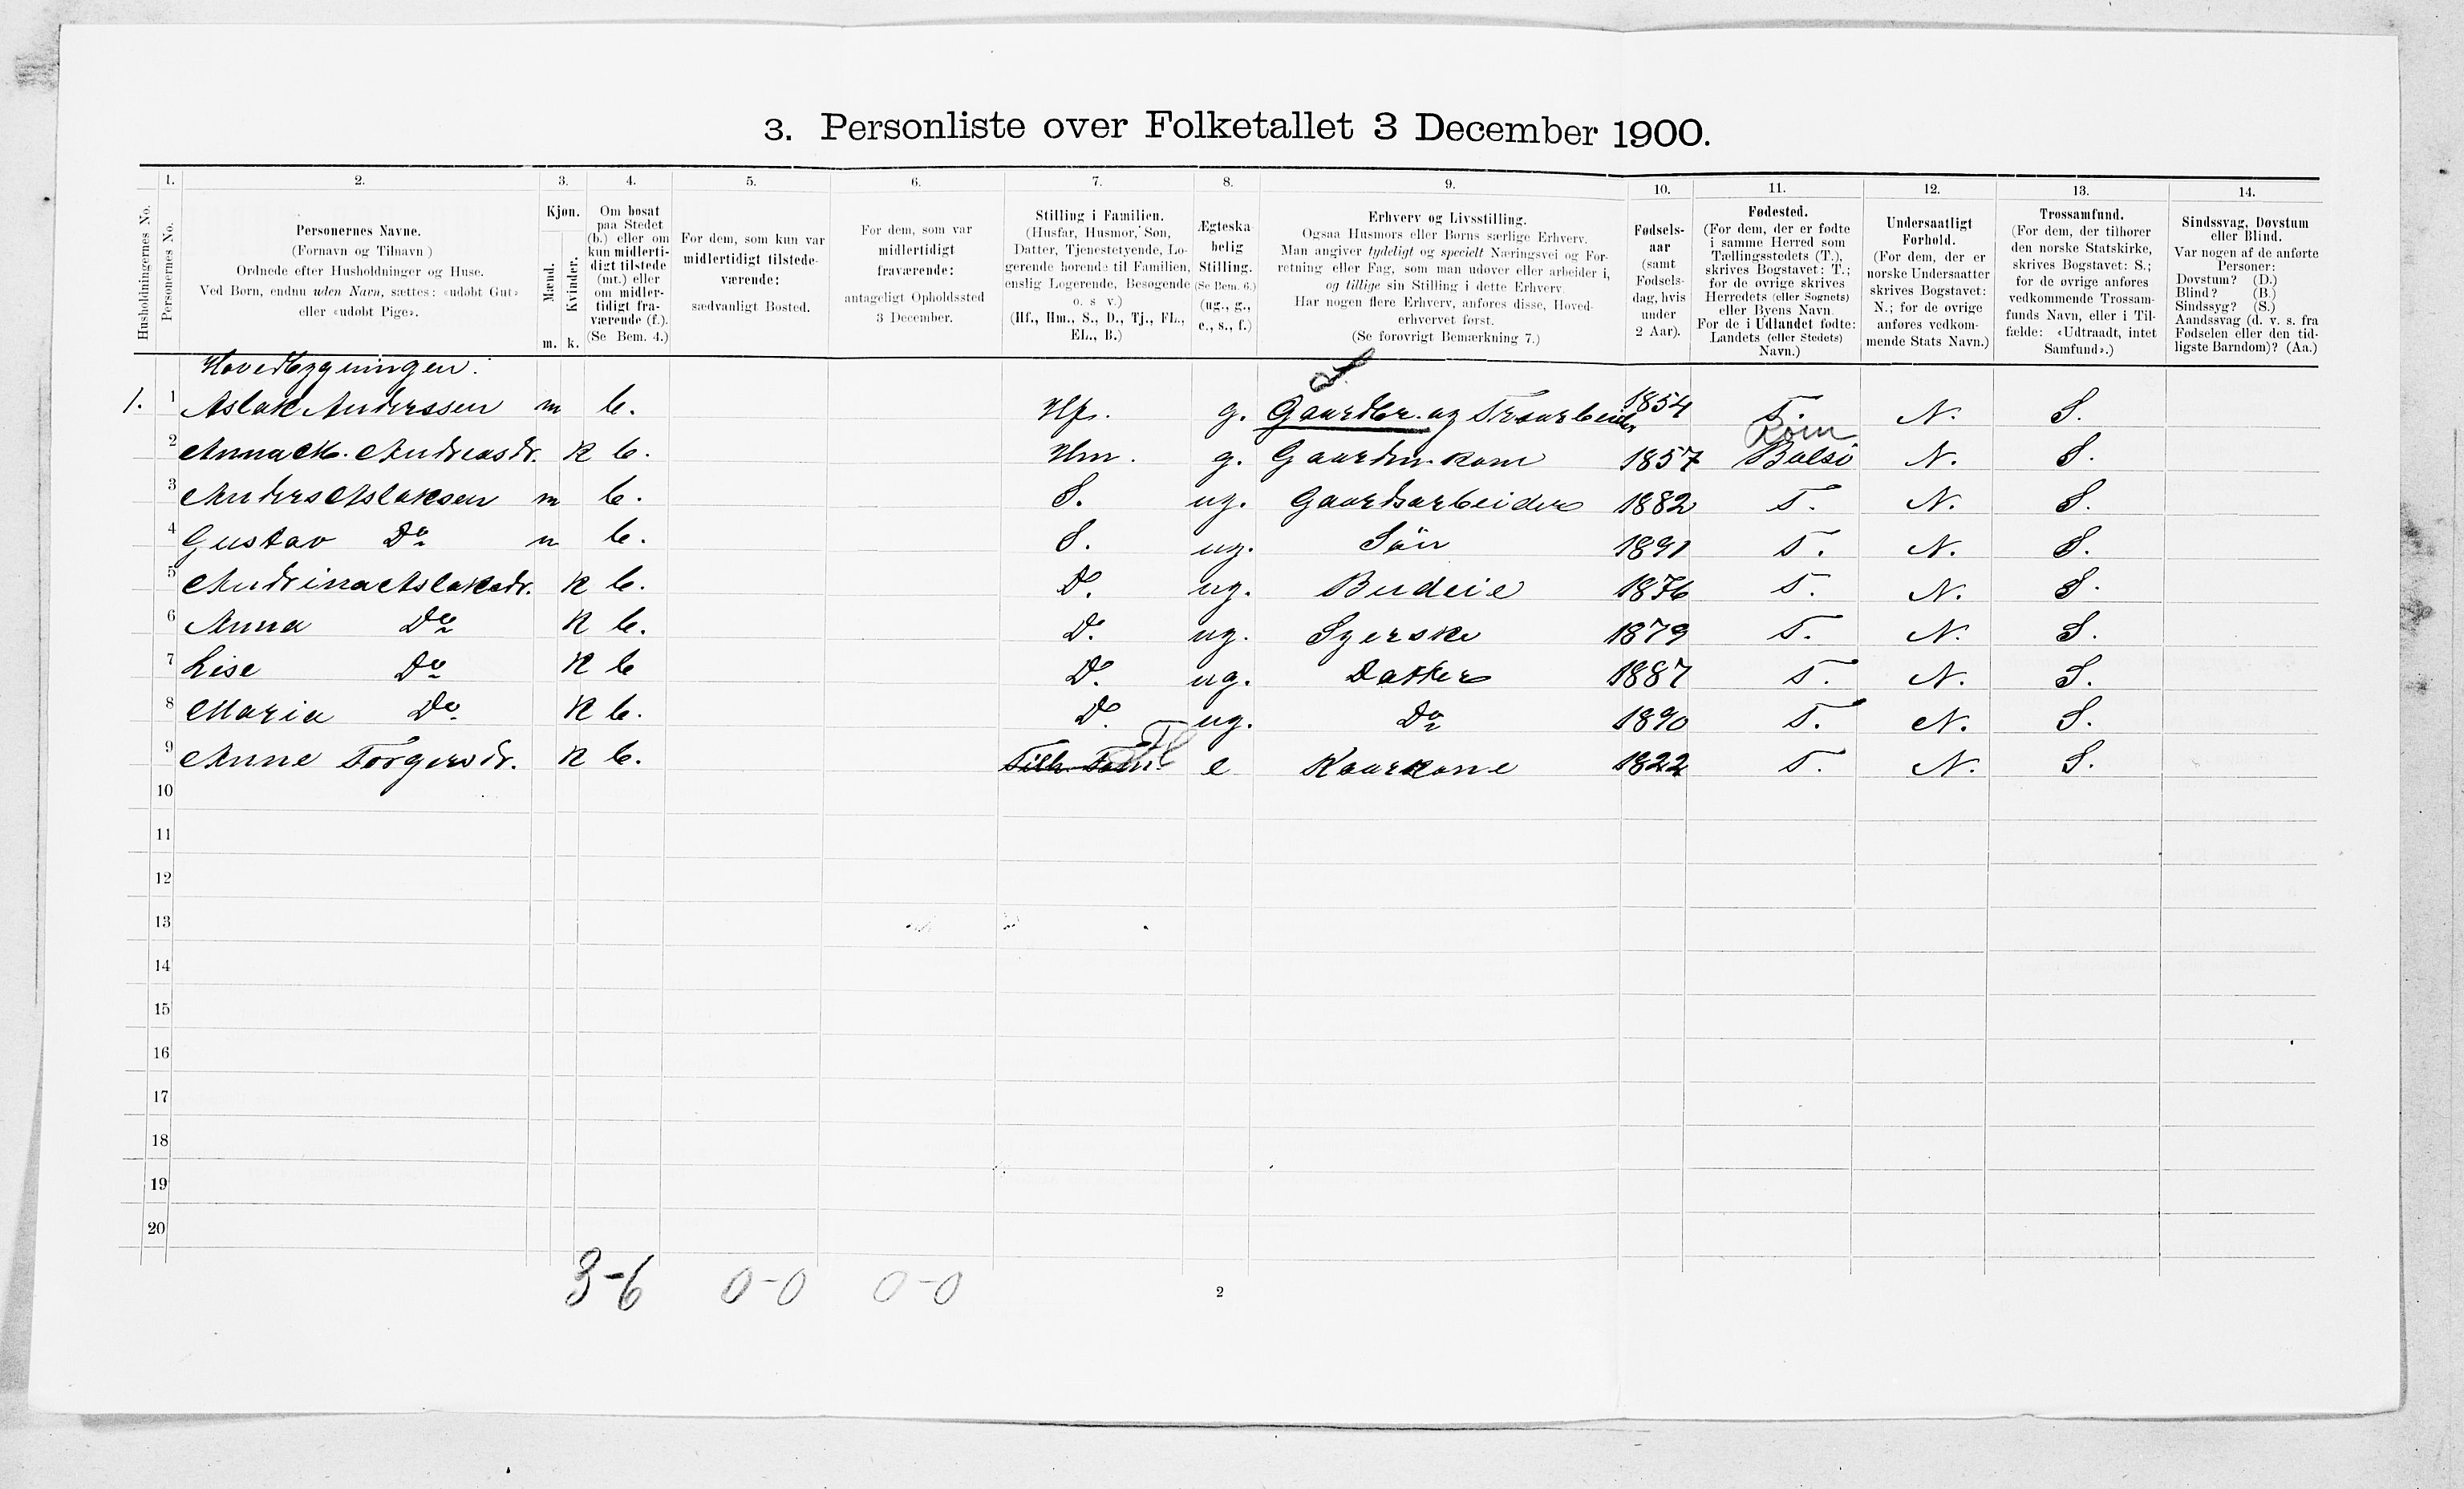 3. Personliste over Folketallet 3 December 1900.
1. 2. 3. 4. 5. 6. 7. 8. 9. 10. 11. 12. 13. 14.
Husholdningernes No.
Personernes No.
Personernes Navne.
(Fornavn og Tilnavn)
Ordnede efter Husholdninger og Huse.
Ved Børn, endnu uden Navn, sættes: «udøbt Gut»
eller «udøbt Pige».
Kjøn.
Mænd.
Kvinder.
m. k.
Om bosat
paa Stedet
(b.) eller om
kun midlerti-
digt tilstede
(mt.) eller
om midler-
tidigt fra-
værende (f.).
(Se Bem. 4.)
For dem, som kun var
midlertidigt tilstede-
værende:
sædvanligt Bosted.
For dem, som var
midlertidigt
fraværende:
antageligt Opholdssted
3 December.
Stilling i Familien.
(Husfar, Husmor, Søn,
Datter, Tjenestetyende, Lo-
gerende hørende til Familien,
enslig Logerende, Besøgende
o. s v.)
(Hf., Hm., S., D., Tj., FL.,
EL., B.)
Ægteska-
belig
Stilling.
(Se Bem. 6.)
(ug., g.,
e., s., f.)
Erhverv og Livsstilling.
Ogsaa Husmors eller Børns særlige Erhverv.
Man angiver tydeligt og specielt Næringsvei og For-
retning eller Fag, som man udøver eller arbeider i,
og tillige sin Stilling i dette Erhverv.
Har nogen flere Erhverv, anføres disse, Hoved-
erhvervet først.
(Se forøvrigt Bemærkning 7.)
Fødsels-
aar
(samt
Fødsels-
dag, hvis
under
2 Aar).
Fødested.
(For dem, der er fødte
i samme Herred som
Tællingsstedets (T.),
skrives Bogstavet: T.;
for de øvrige skrives
Herredets (eller Sognets)
eller Byens Navn.
For de i Udlandet fødte:
Landets (eller Stedets)
Navn.)
Undersaatligt
Forhold.
(For dem, der er
norske Undersaatter
skrives Bogstavet:
N.; for de øvrige
anføres vedkom-
mende Stats Navn.)
Trossamfund.
(For dem, der tilhører
den norske Statskirke,
skrives Bogstavet: S.;
for de øvrige anføres
vedkommende Trossam-
funds Navn, eller i Til-
fælde: «Udtraadt, intet
Samfund».)
Sindssvag, Døvstum
eller Blind.
Var nogen af de anførte
Personer:
Døvstum? (D.)
Blind? (B.)
Sindssyg? (S.)
Aandssvag (d. v. s. fra
Fødselen eller den tid-
ligste Barndom)? (Aa.)
Hovedbygningen:
1. 1 Aslak Anderssen m b. Hf. g. Gaardbr. og Træarbeider 1854 T. N. S.
Rom
2 Anna M. Andreasdr. k b. Hm. g. Gaardm. kone 1857 Bolsö N. S.
3 Anders Aslaksen m b. S. ug. Gaardsarbeider 1882 T. N. S.
4 Gustav Do m b. S. ug. Sön 1891 T. N. S.
5 Andrina Aslaksdr. k b. D. ug. Budeie 1876 T. N. S.
6 Anna Do k b. D. ug. Syerske 1879 T. N. S.
7 Lise Do k b D. ug. Datter 1887 T. N. S.
8 Maria Do k b. D. ug. Do 1890 T. N. S.
9 Anne Torgersdr. k b. Tilh. Fam. Fl e Kaarkone 1822 T. N. S.
10
11
12
13
14
15
16
17
18
19
20
3-6 0-0 0-0
2